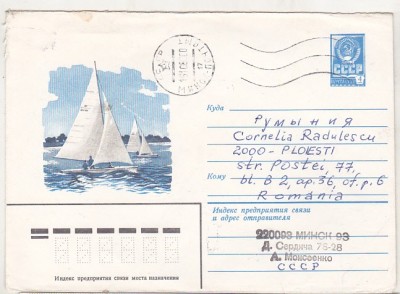 СССР
Куда
Румыния
Cornelia Radulescu
2000 - PLOESTI
str. Postei, 77,
Кому
bl. B 2, ap. 56, of. p. 6
Romania
Индекс предприятия связи
и адрес отправителя
220093 МИНСК 93
Д. Сердича 76-28
А. Моисеенко
СССР
Индекс предприятия связи места назначения